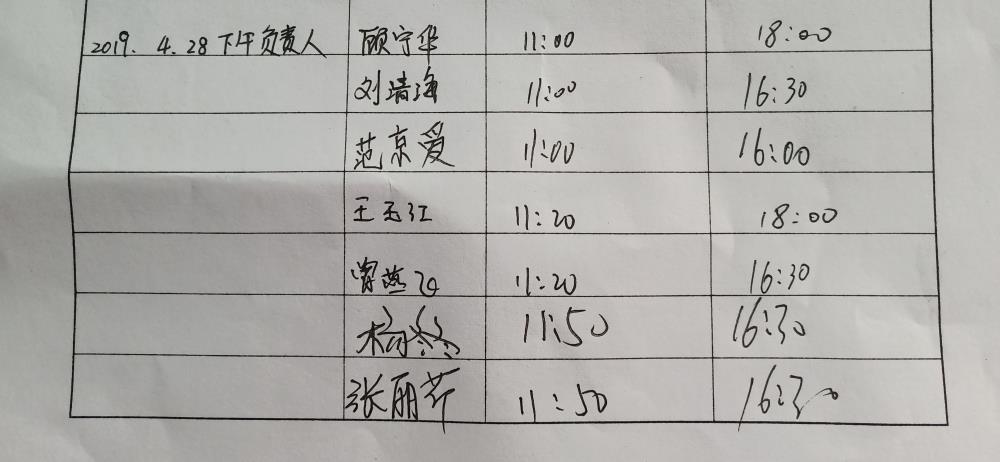 2019. 4. 28 下午负责人 顾宁华 11:00 18:00
刘清海 11:00 16:30
范京爱 11:00 16:00
王玉江 11:20 18:00
曾燕飞 11:20 16:30
杨 11:50 16:30
张丽芹 11:50 16:30